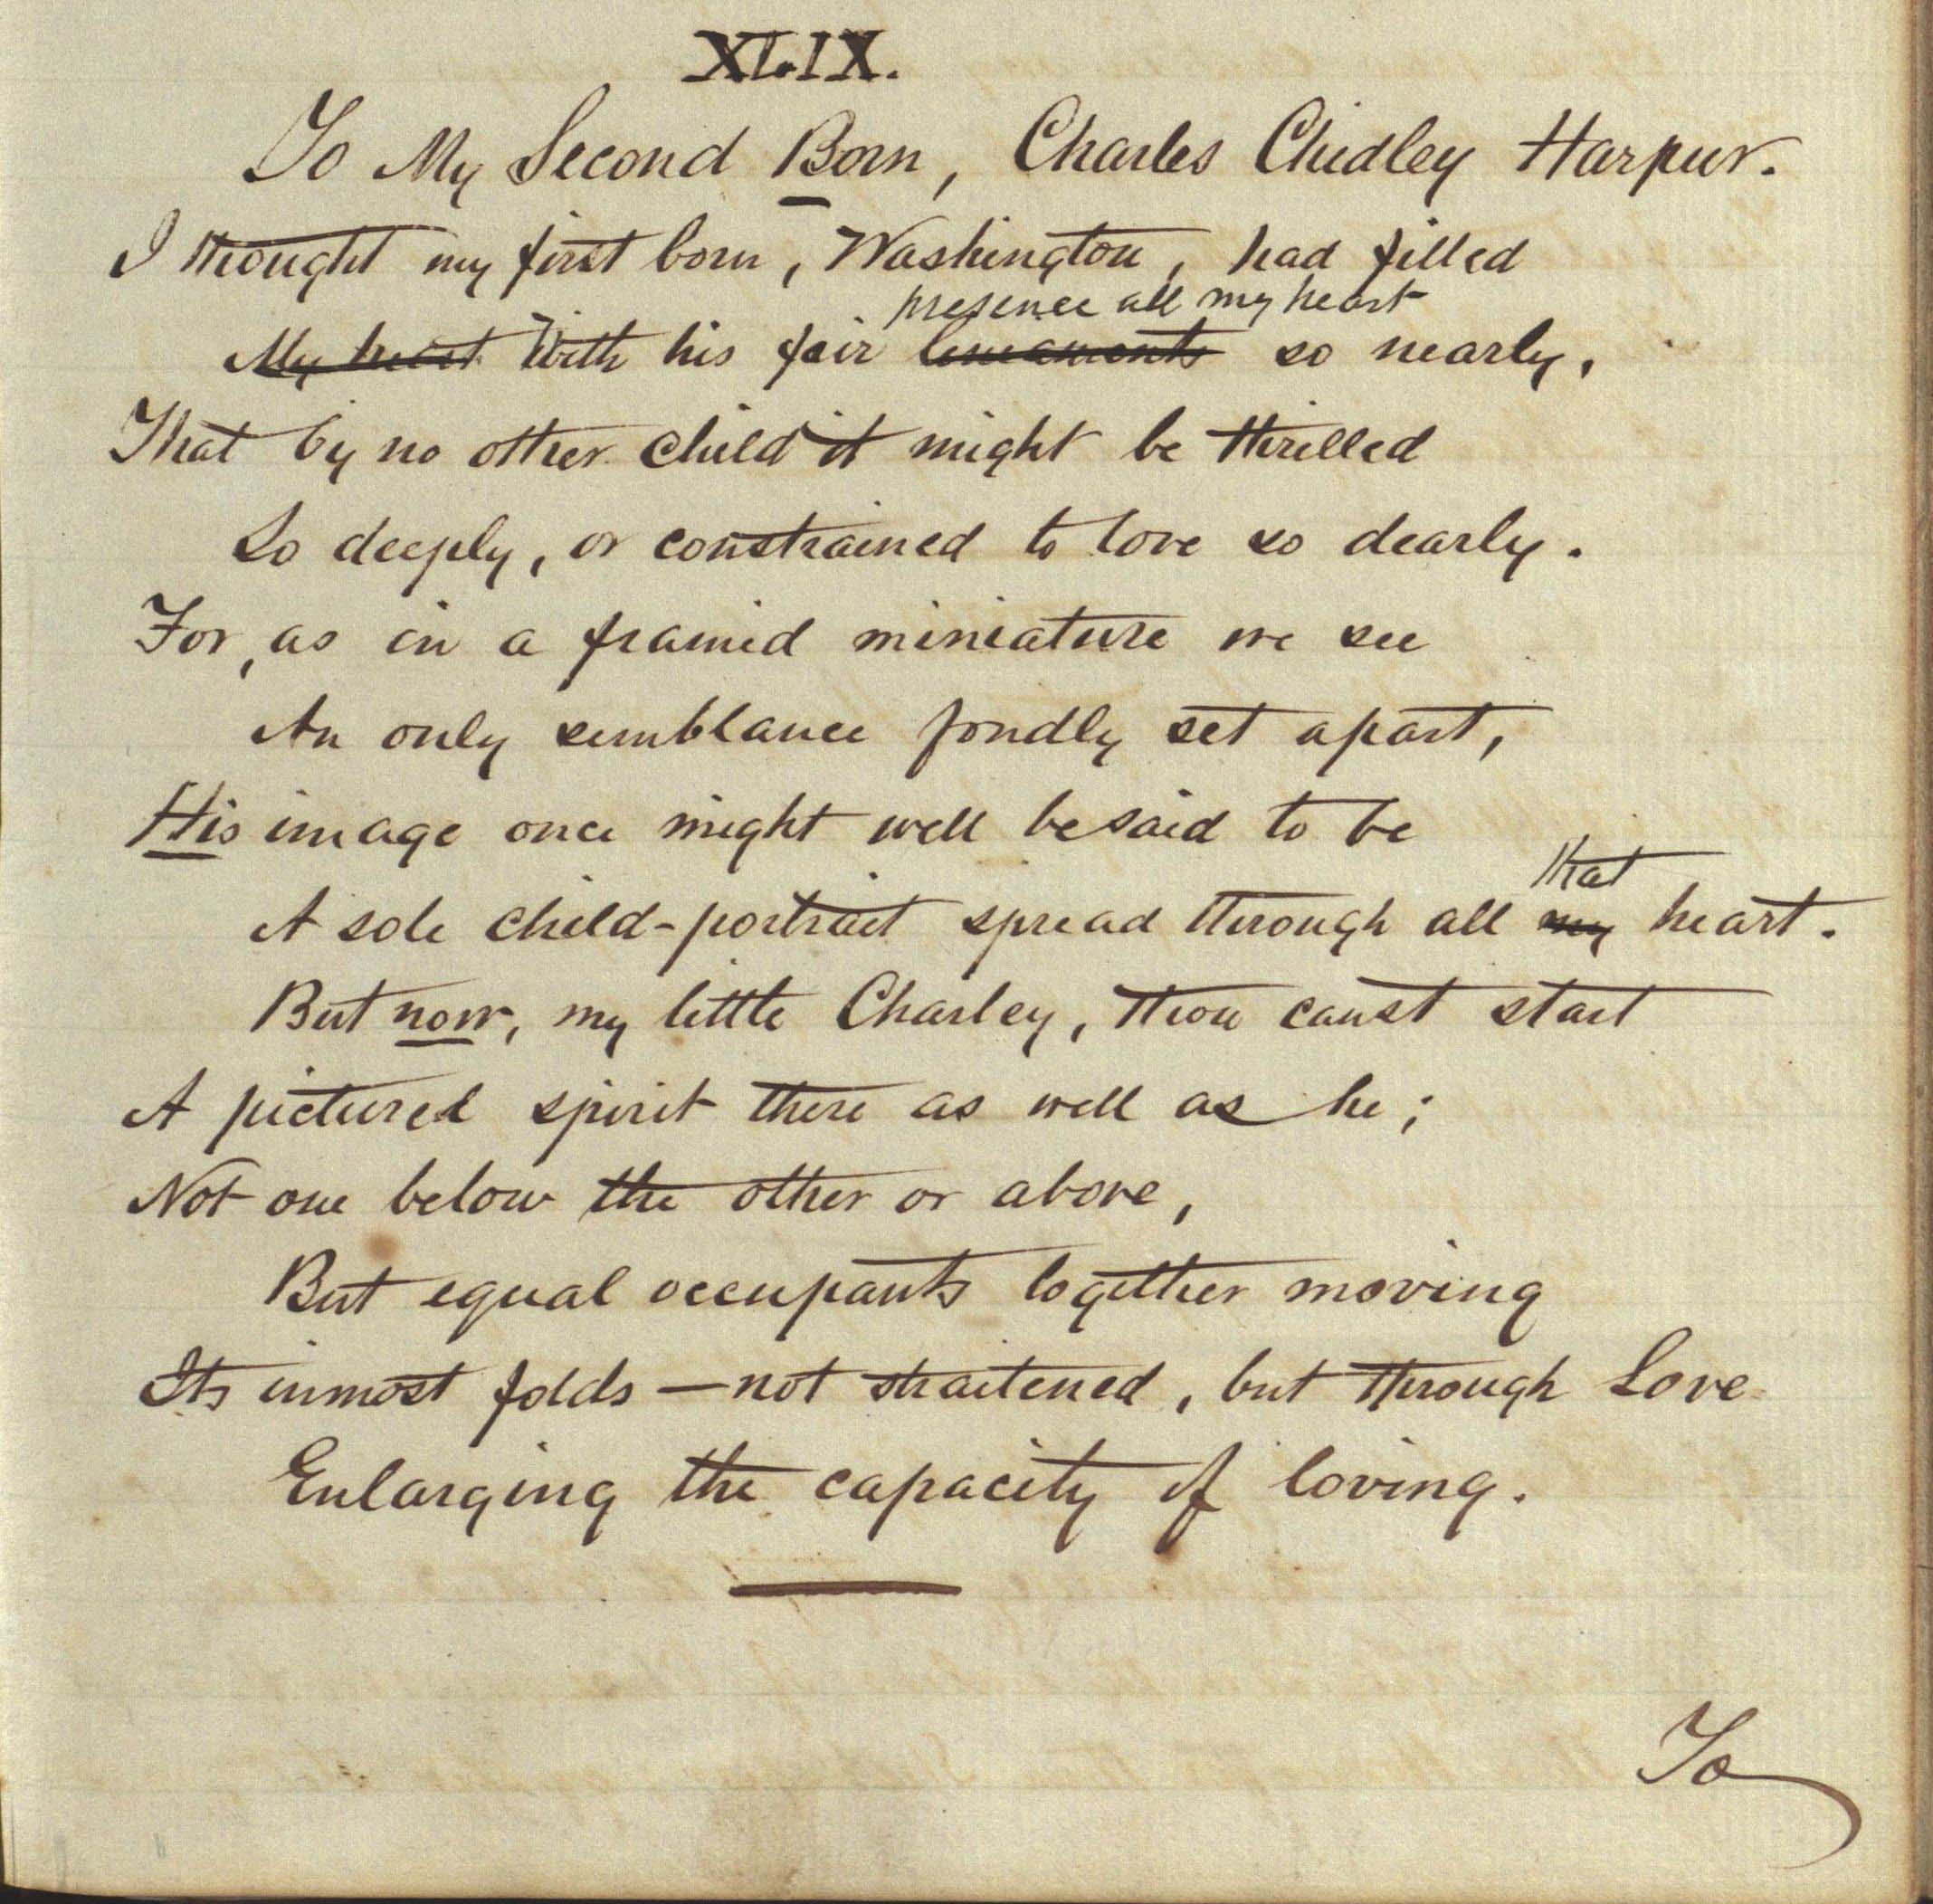 XLIX.
To My Second Born, Charles Chidley Harpur.
I thought my first born, Washington, had filled
presence all my heart
My heart With his fair lineaments so nearly,
That by no other child it might be thrilled
So deeply, or constrained to love so dearly.
For, as in a framid miniature we see
An only semblance fondly set apart,
His image once might well be said to be
that
A sole child-portrait spread through all my heart.
But now, my little Charley, thou canst start
A pictured spirit there as well as he;
Not one below the other or above,
But equal occupants together moving
Its inmost folds — not straitened, but through Love
Enlarging the capacity of loving.
To